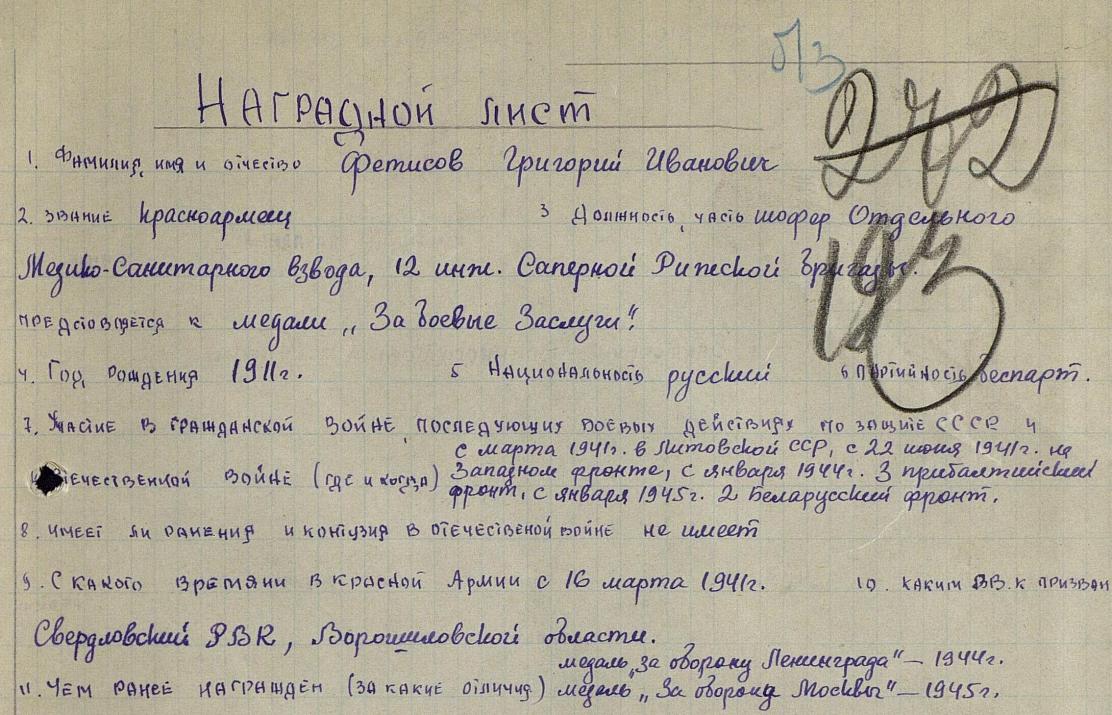 П/3
272
193
НАГРАДНОЙ ЛИСТ
1. Фамилия, имя и отчество Фетисов Григорий Иванович
2. Звание Красноармеец 3 Должность, часть шофер Отдельного
Медико-Санитарного взвода, 12 инж. Саперной Рижской Бригады.
представляется к медали „За боевые Заслуги".
4. Год рождения 1911г. 5 Национальность русский 6 Партийность беспарт.
7. Участие в гражданской войне, последующих боевых действиях по защите СССР и
с марта 1941г. в Литовской ССР, с 22 июня 1941г. на
Отечественной войне (где и когда) Западном фронте, с января 1944г. 3 прибалтийский
фронт, с января 1945г. 2 Беларусский фронт.
8. имеет ли ранения и контузия в отечественой войне не имеет
9. С какого времяни в красной Армии с 16 марта 1941г. 10. каким РВ.К призван
Свердловский РВК, Ворошиловской области.
медаль „За оборону Ленинграда" — 1944г.
11. Чем ранее награжден (за какие отличия) медаль „За оборону Москвы" — 1945г.